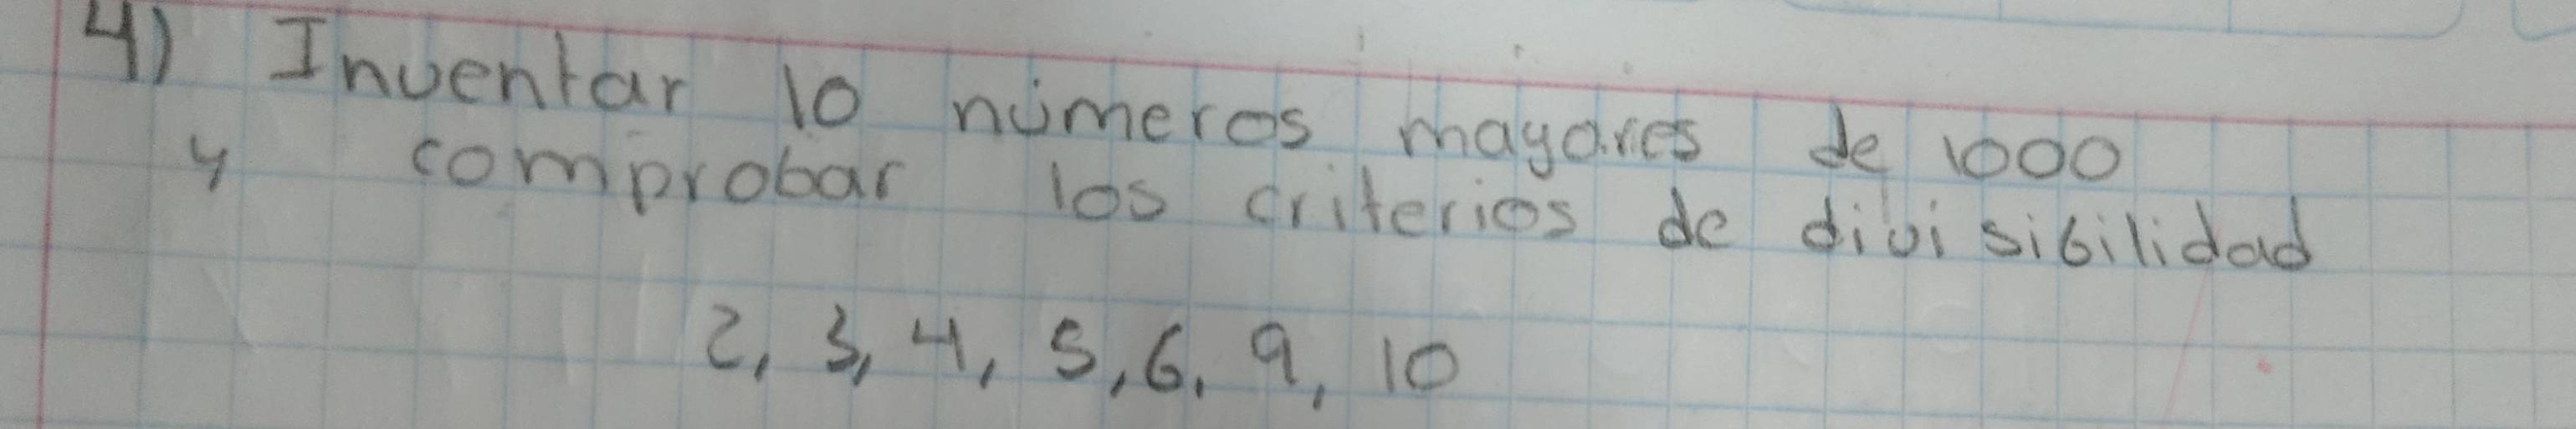 4) Inventar 10 números mayores de 1000
y comprobar los criterios de divisibilidad
2, 3, 4, 5, 6, 9, 10